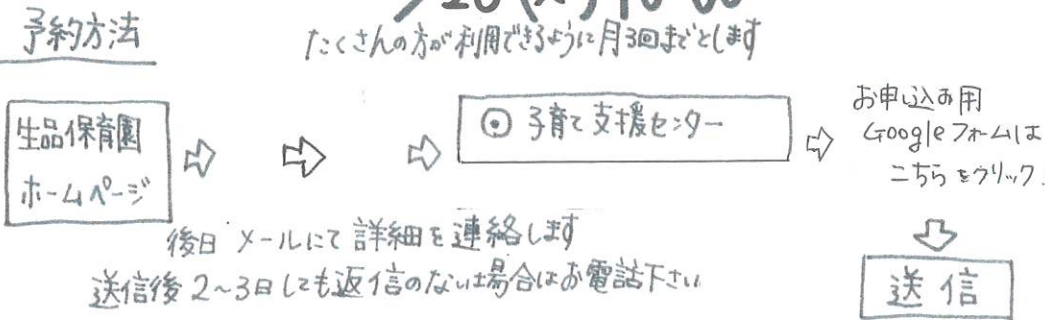 予約方法
たくさんの方が利用できるように月3回までとします
生品保育園
ホームページ
⇨ ⇨ ⇨
◉ 子育て支援センター
⇨
お申し込み用
Googleフォームは
こちらをクリック
⇩
送信
後日 メールにて詳細を連絡します
送信後2～3日しても返信のない場合はお電話下さい